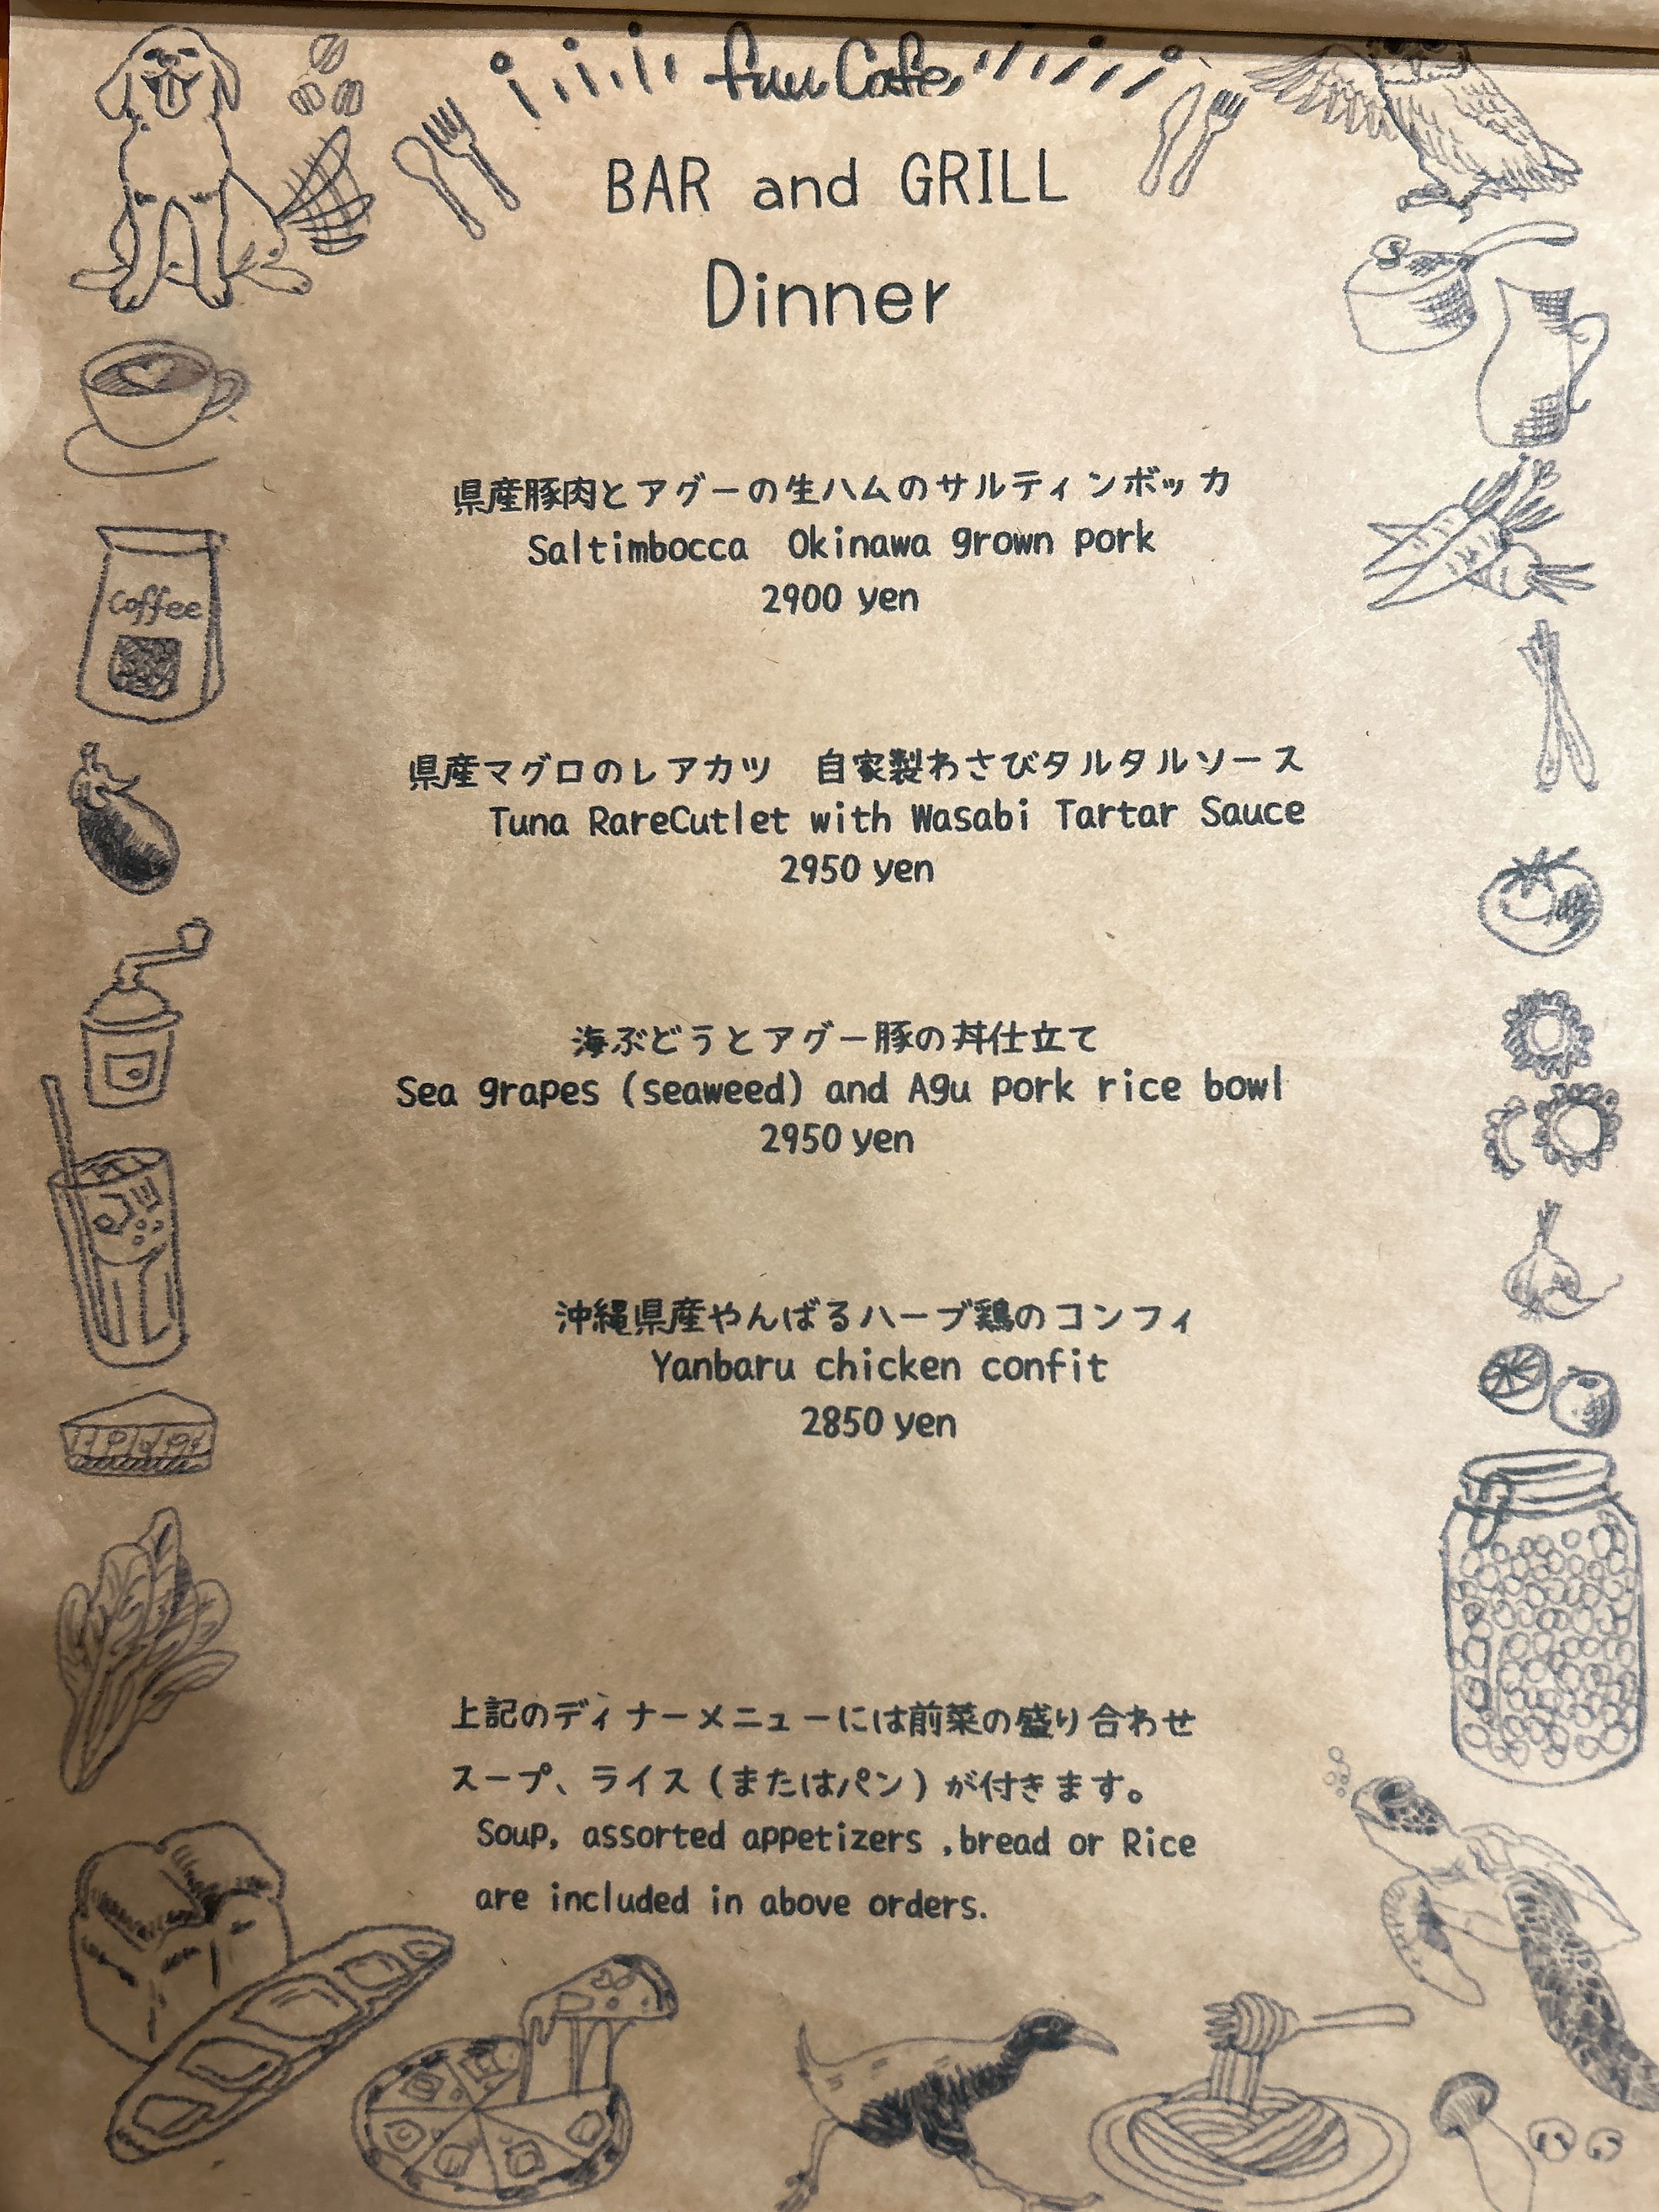 fuu Cafe
BAR and GRILL
Dinner
Coffee
県産豚肉とアグーの生ハムのサルティンボッカ
Saltimbocca Okinawa grown pork
2900 yen
県産マグロのレアカツ 自家製わさびタルタルソース
Tuna RareCutlet with Wasabi Tartar Sauce
2950 yen
海ぶどうとアグー豚の丼仕立て
Sea grapes (seaweed) and Agu pork rice bowl
2950 yen
沖縄県産やんばるハーブ鶏のコンフィ
Yanbaru chicken confit
2850 yen
上記のディナーメニューには前菜の盛り合わせ
スープ、ライス(またはパン)が付きます。
Soup, assorted appetizers ,bread or Rice
are included in above orders.